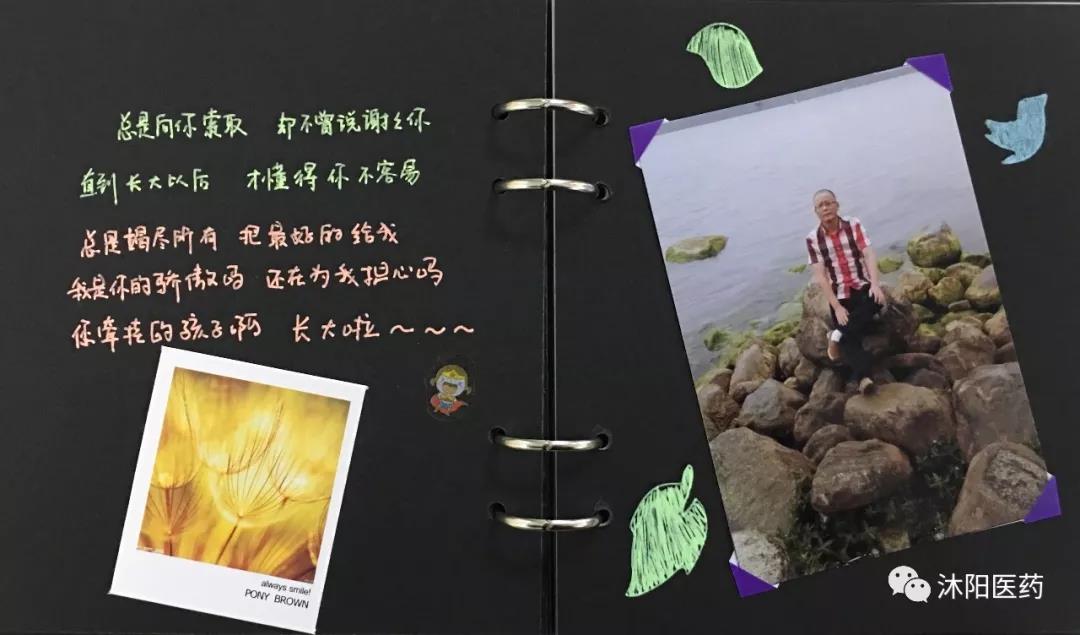 总是向你索取 却不曾说谢谢你
直到长大以后 才懂得你不容易
总是竭尽所有 把最好的给我
我是你的骄傲吗 还在为我担心吗
你牵挂的孩子啊 长大啦～～～
always smile!
PONY BROWN
沐阳医药